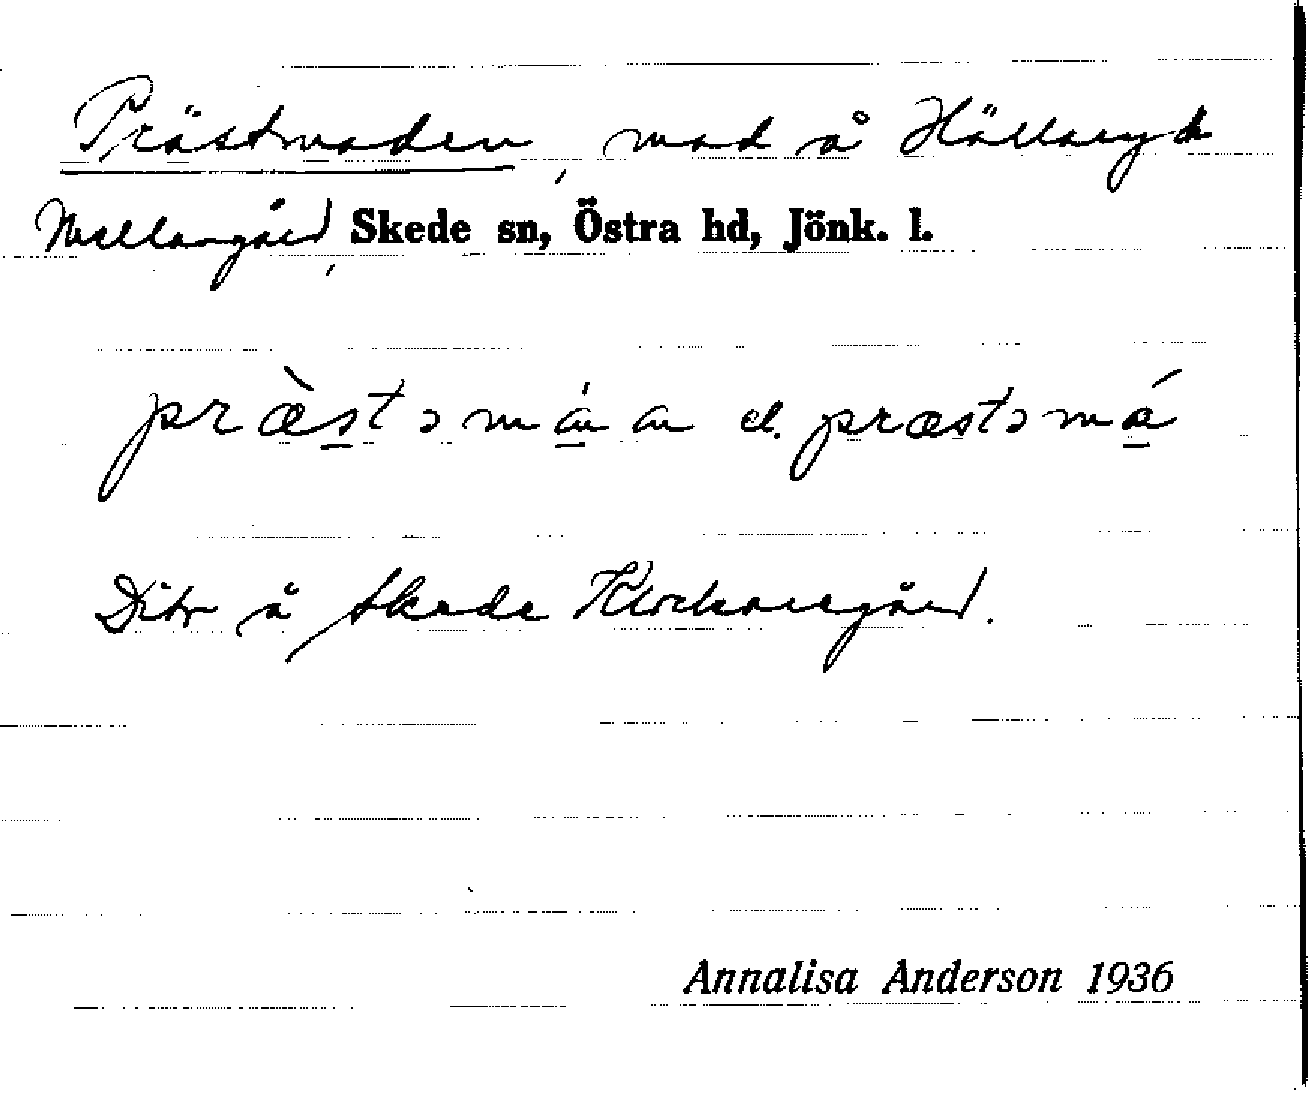 Prästmaden, mad å Hällaryd
Mellangård, Skede sn, Östra hd, Jönk. l.
præ̀stəmáan el. præstəmá
Dito å Skede Klockaregård.
Annalisa Anderson 1936